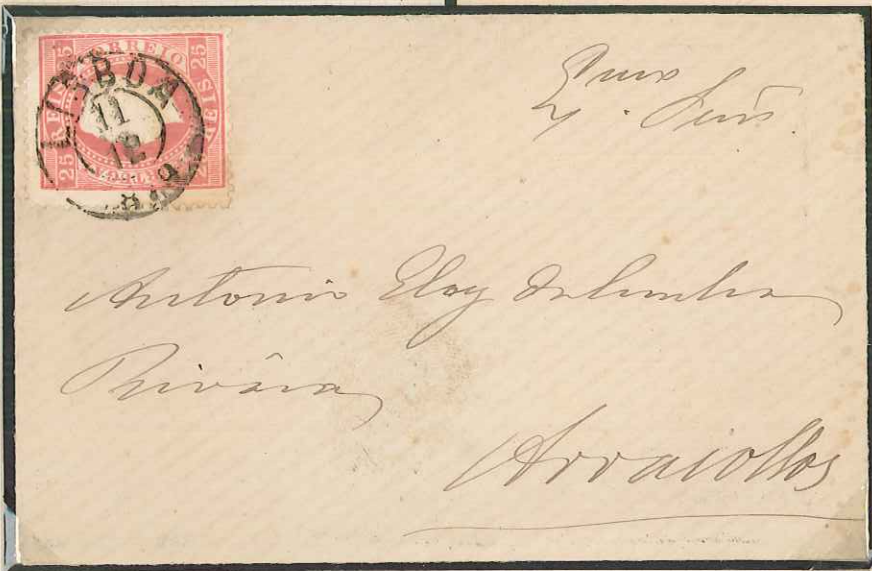 CORREIO
25 25
REIS REIS
25
LISBOA
11
12
Exmo
Snr.
Antonio Eloy da Cunha
Rivára
Arraiollos